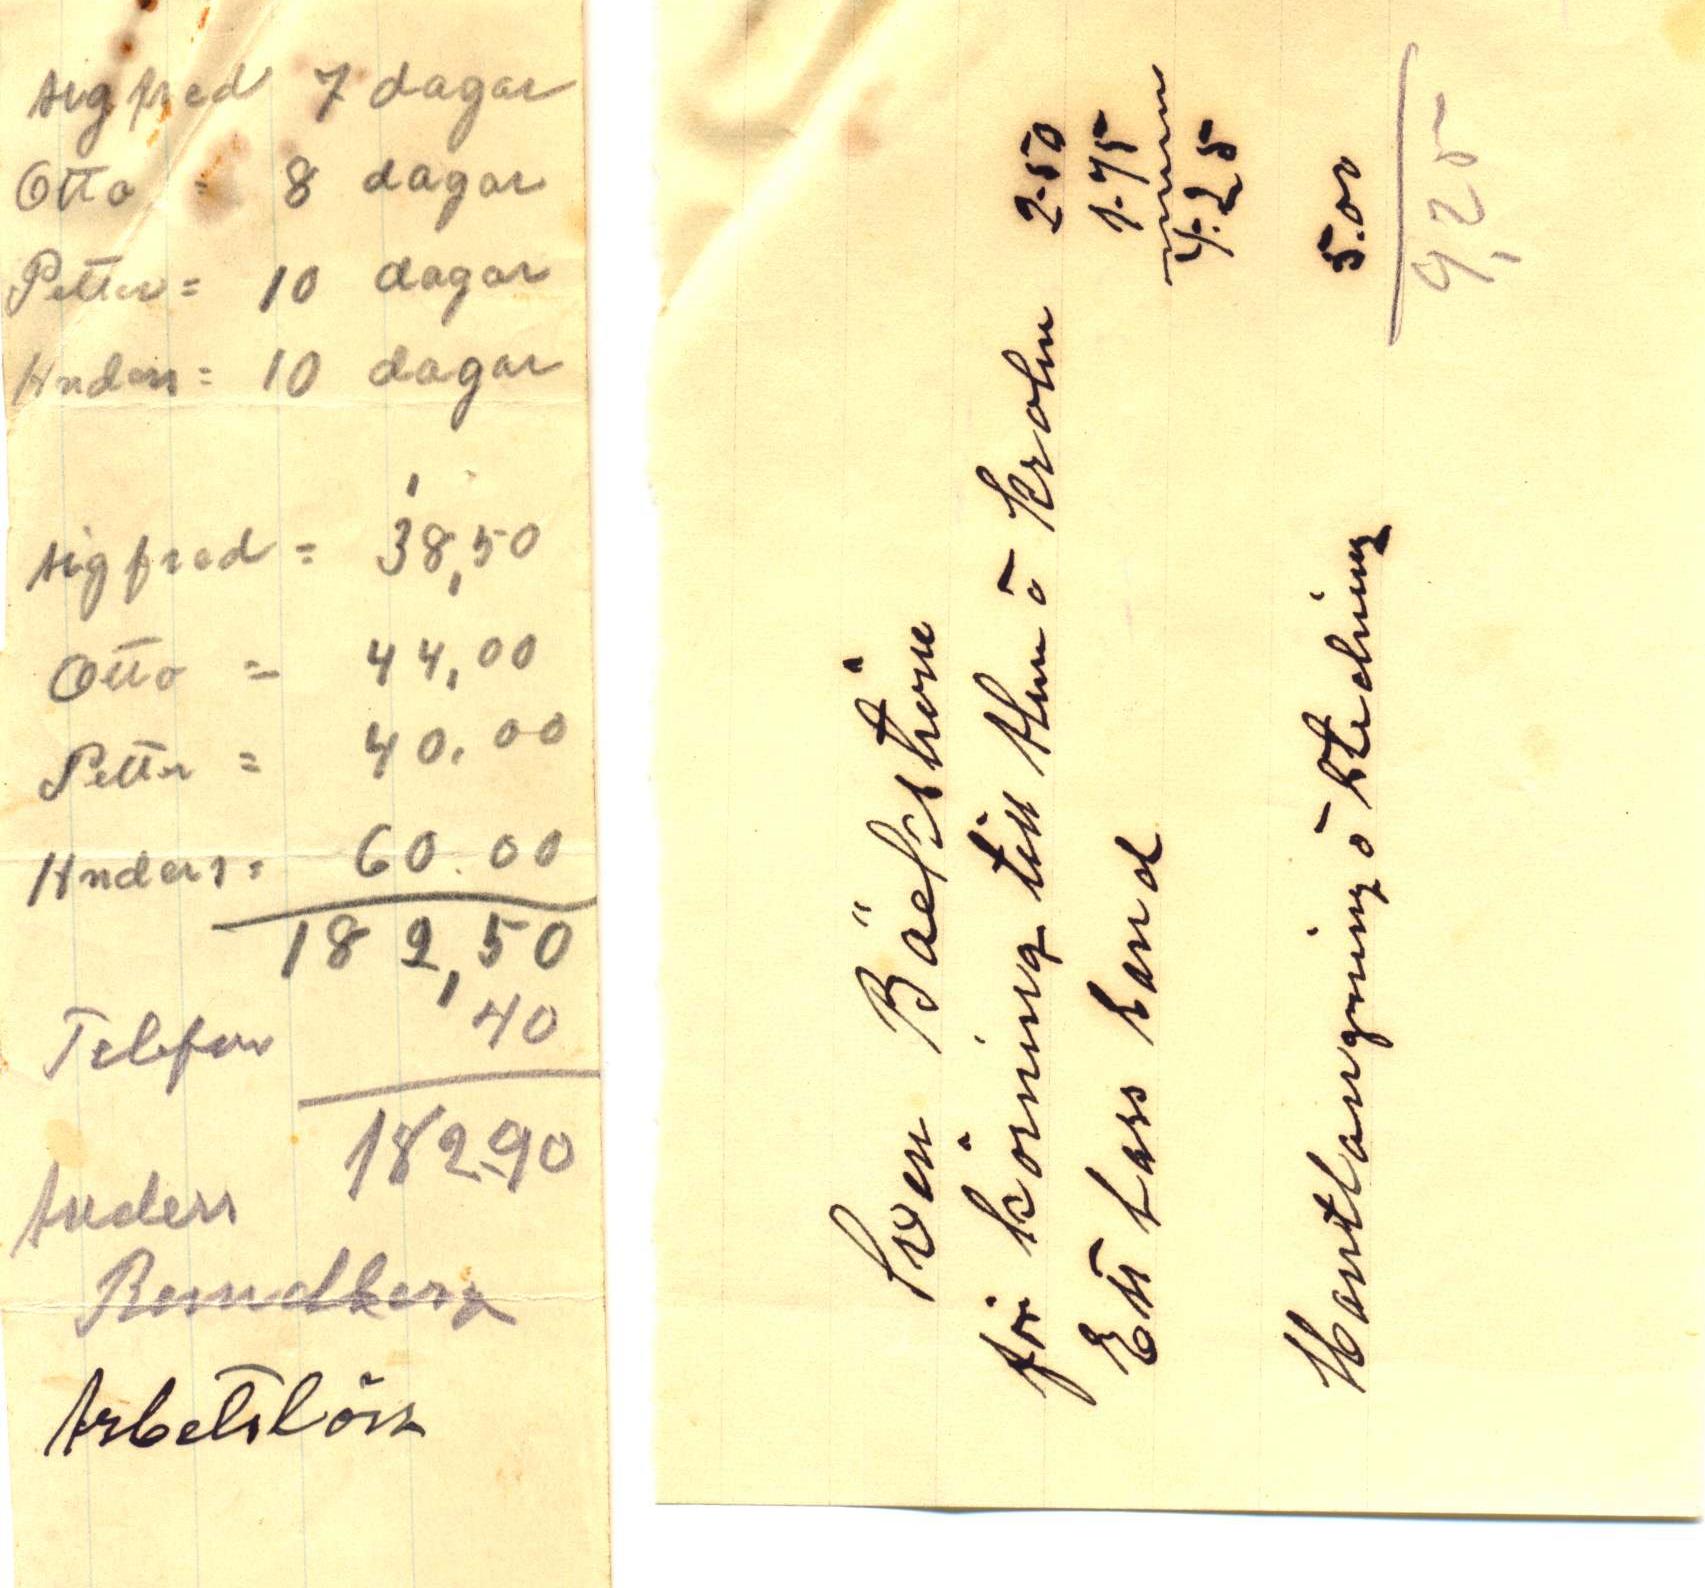 Sigfred 7 dagar
Otto = 8 dagar
Petter = 10 dagar
Anders = 10 dagar
Sigfred = 38,50
Otto = 44,00
Petter = 40.00
Anders = 60.00
182,50
Telefon 40
182.90
Anders
Arbetslön
Sven Bäckström
för körning till ö 2.50
Ett lass sand 1.75
4.25
Hantlangning ö 5.00
9,25